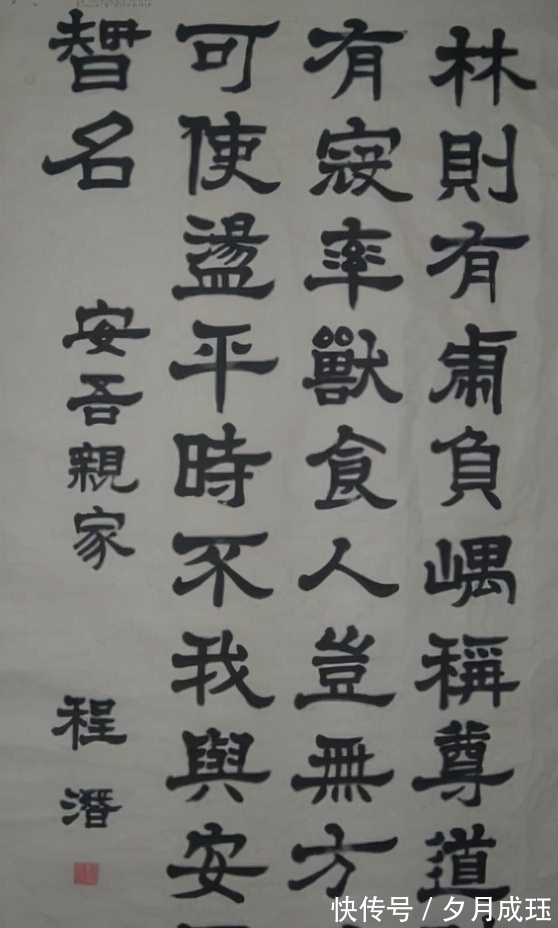 林則有虎負嵎稱尊道
有寇率獸食人豈無方
可使盪平時不我與安
智名
安吾親家
程潛
快传号/夕月成珏